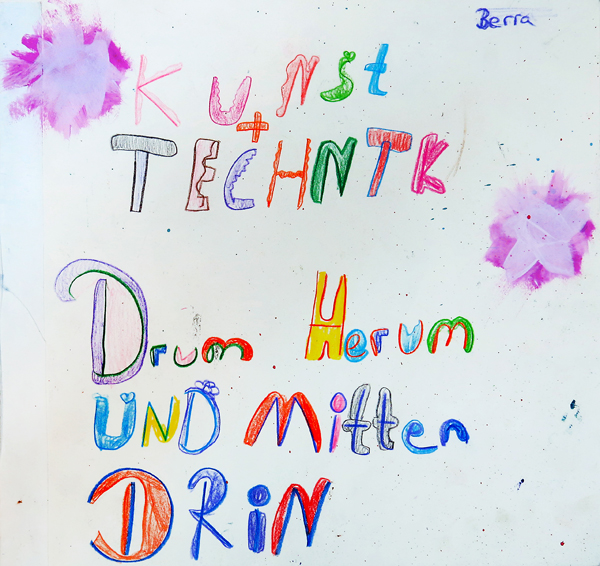 Berra
KUNST
+
TECHNTK
Drum Herum
UND Mitten
DRiN